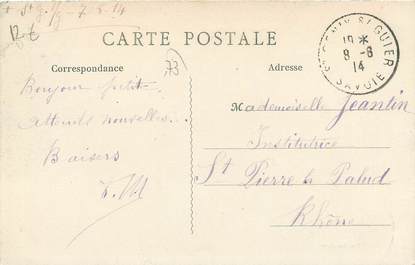 7. 8. 14
12 €
CARTE POSTALE
Correspondance
73
Adresse
ST GENIX S. GUIER
19 *
8 - 8
14
SAVOIE
Bonjour petit
Attends nouvelles...
Baisers
Mademoiselle Jeantin
Institutrice
St Pierre la Palud
Rhône